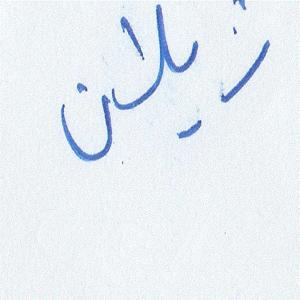 ژیلان